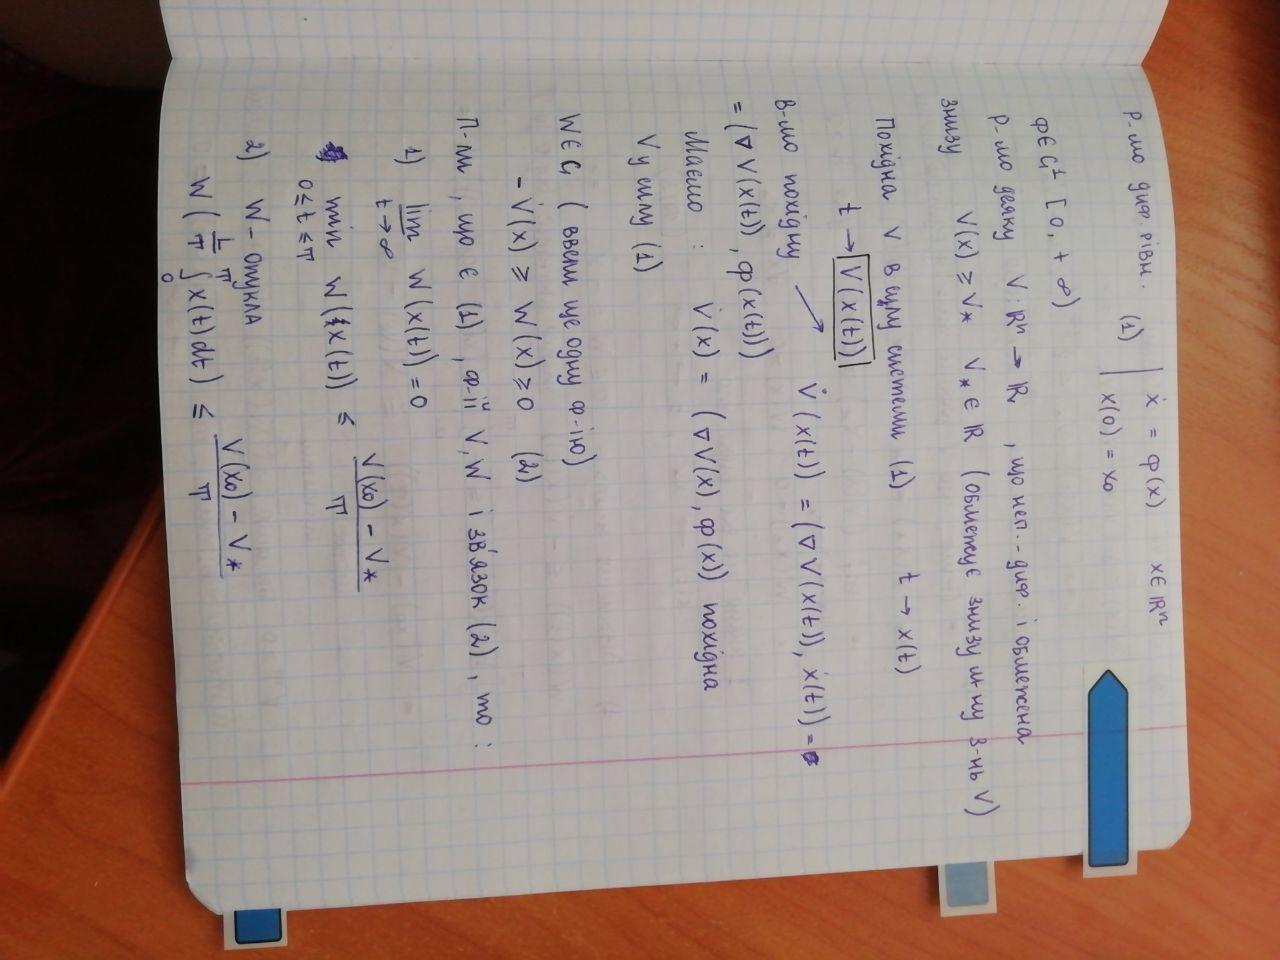 Р-мо диф. рівн. (1) | ẋ = φ(x) x ∈ ℝⁿ
x(0) = x₀
φ ∈ C¹ [0, +∞)
Р-мо деяку V : ℝⁿ → ℝ , що неп.-диф. і обмежена
знизу V(x) ≥ V* V* ∈ ℝ (обмежує знизу мн-ну з-нь V)
Похідна V в силу системи (1) t → x(t)
t → V(x(t))
В-мо похідну V̇(x(t)) = (∇V(x(t)), ẋ(t)) =
= (∇V(x(t)), φ(x(t)))
Маємо : V̇(x) = (∇V(x), φ(x)) похідна
V у силу (1)
W ∈ C (ввели ще одну ф-ію)
- V̇(x) ≥ W(x) ≥ 0 (2)
П-ли, що є (1), ф-ії V, W і зв'язок (2), то :
1) lim W(x(t)) = 0
t → ∞
min W(x(t)) ≤ (V(x₀) - V*) / T
0 ≤ t ≤ T
2) W - опукла
W( 1/T ∫₀ᵀ x(t) dt) ≤ (V(x₀) - V*) / T